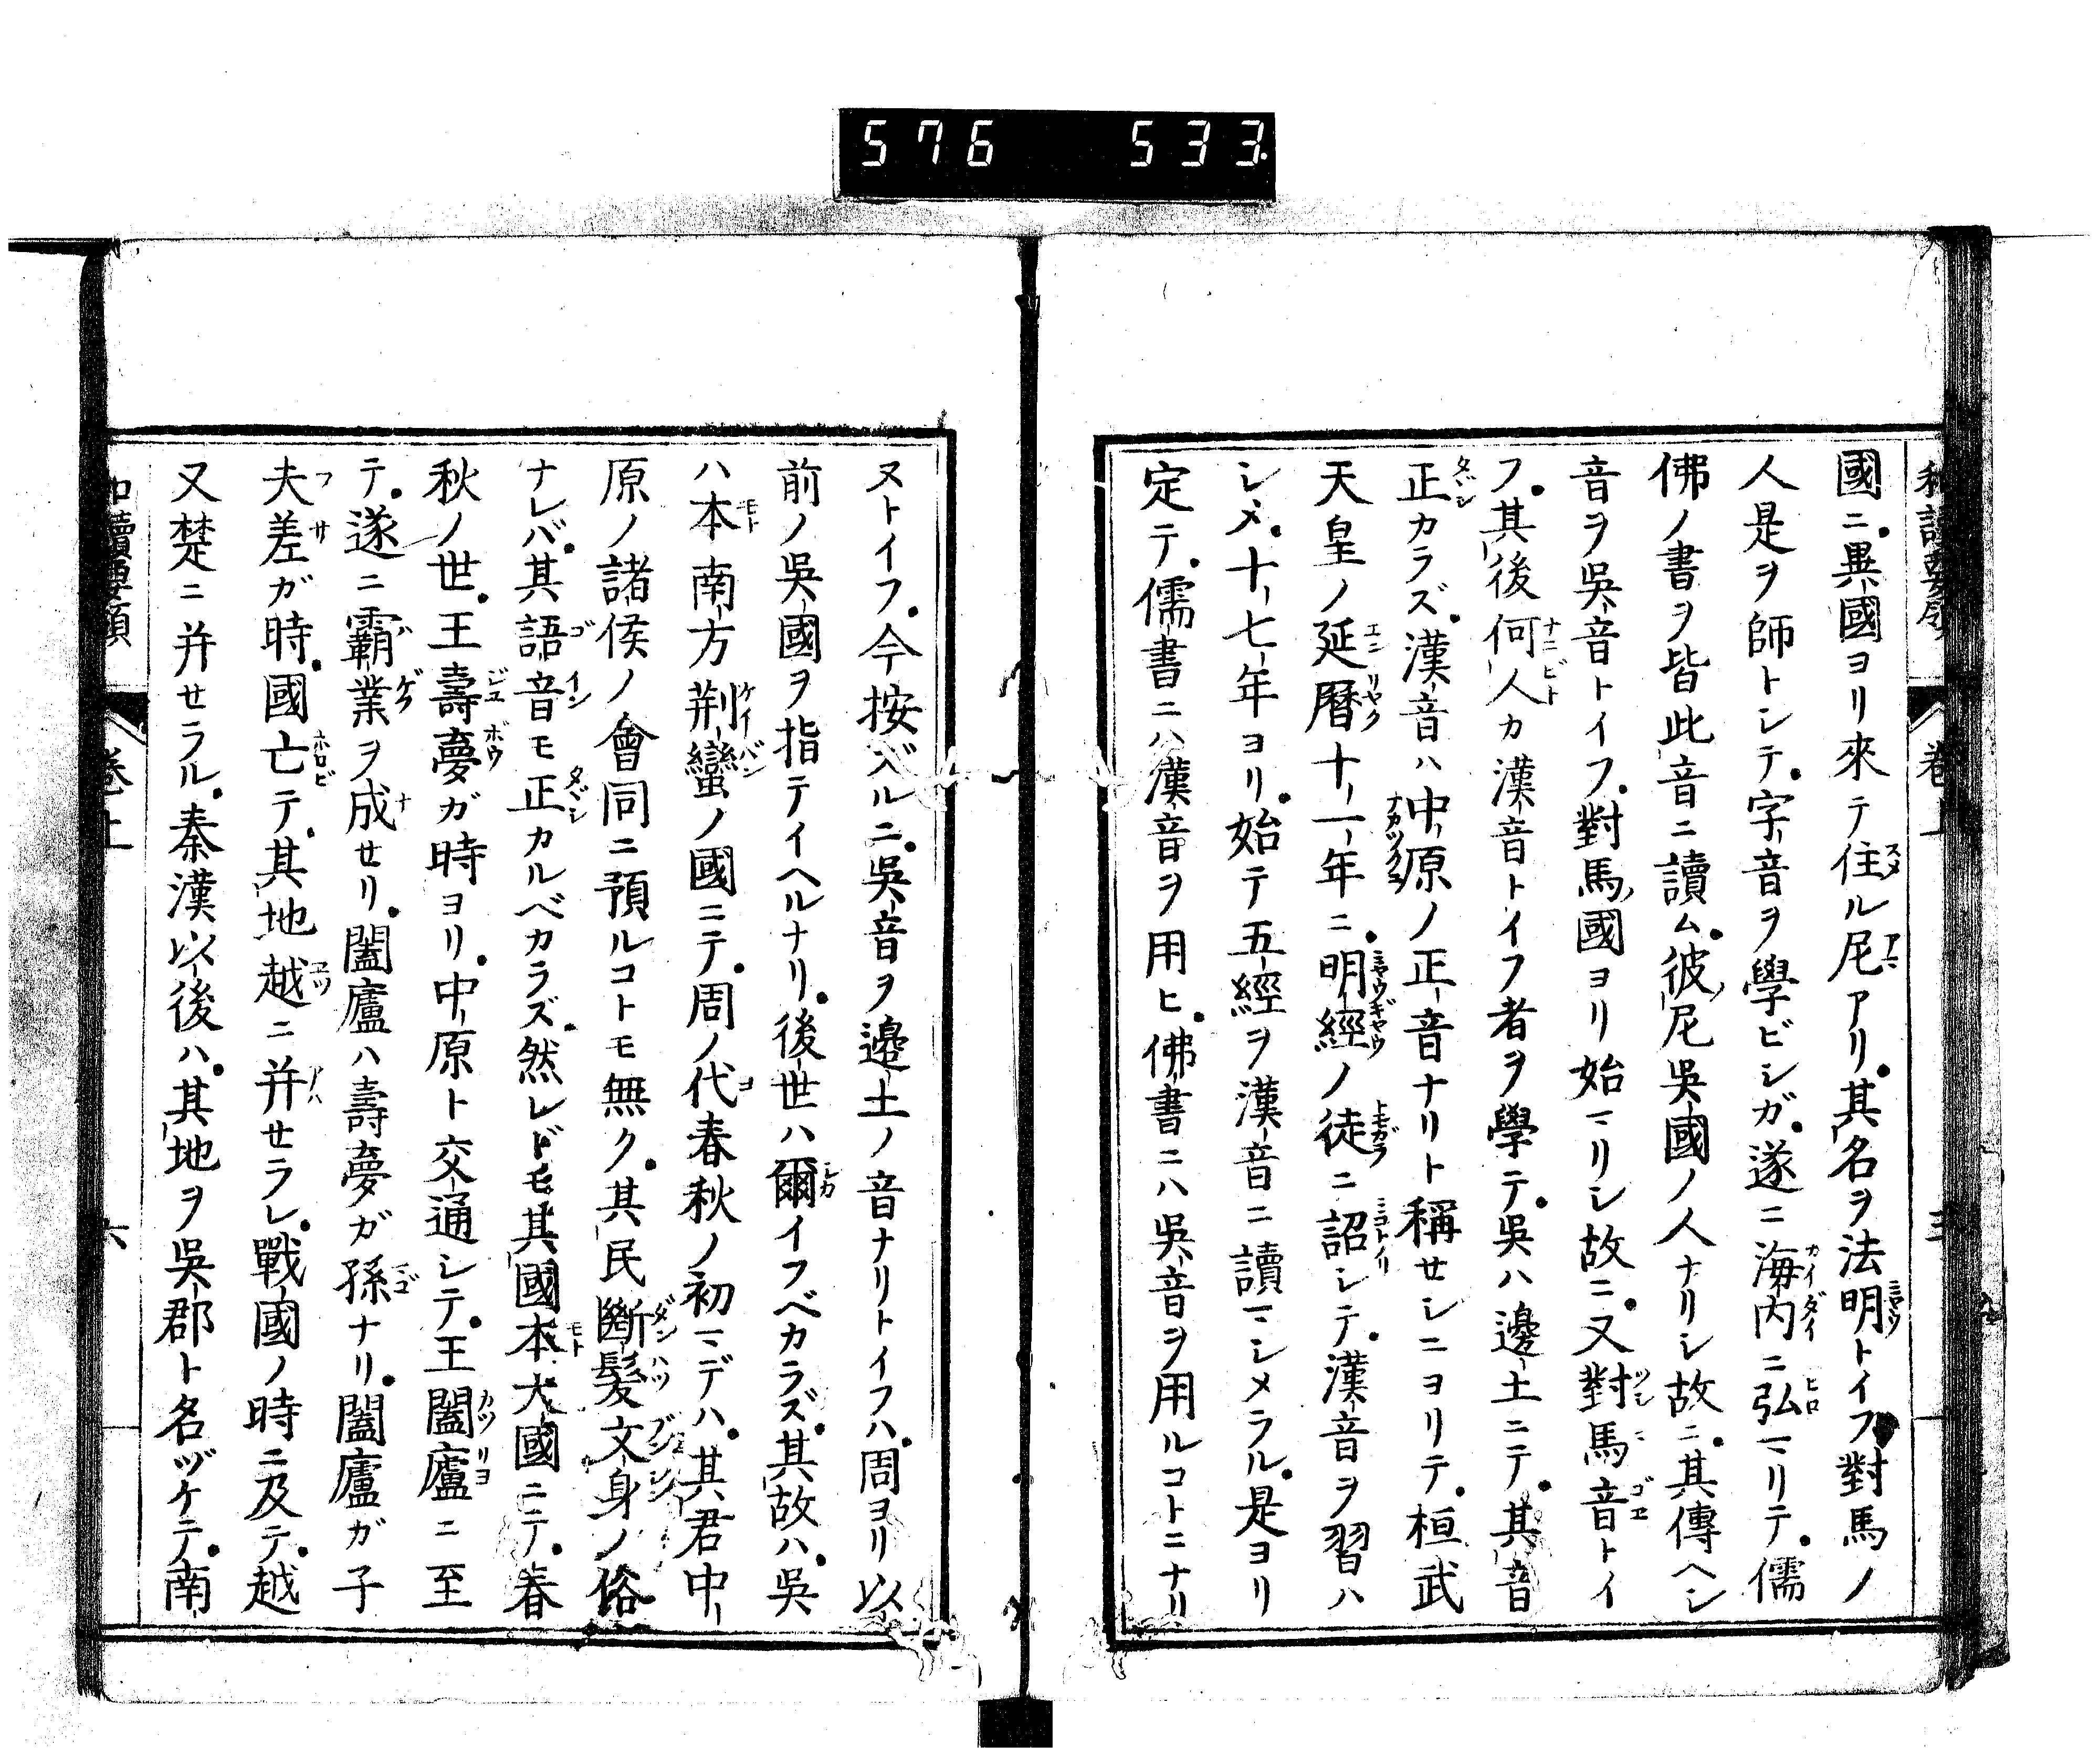 576 533
國ニ異國ヨリ來テ住ル尼アリ其名ヲ法明トイフ對馬ノ
人是ヲ師トシテ字音ヲ學ビシガ遂ニ海内ニ弘マリテ儒
佛ノ書ヲ皆此音ニ讀ム彼尼吳國ノ人ナリシ故ニ其傳ヘシ
音ヲ吳音トイフ對馬國ヨリ始マリシ故ニ又對馬音トイ
フ其後何人カ漢音トイフ者ヲ學テ吳ハ邊土ニテ其音
正カラズ漢音ハ中原ノ正音ナリト稱セシニヨリテ桓武
天皇ノ延曆十一年ニ明經ノ徒ニ詔シテ漢音ヲ習ハ
シメ十七年ヨリ始テ五經ヲ漢音ニ讀マシメラル是ヨリ
定テ儒書ニハ漢音ヲ用ヒ佛書ニハ吳音ヲ用ルコトニナリ
ヌトイフ今按ズルニ吳音ヲ邊土ノ音ナリトイフハ周ヨリ以
前ノ吳國ヲ指テイヘルナリ後世ハ爾イフベカラズ其故ハ吳
ハ本南方荆蠻ノ國ニテ周ノ代春秋ノ初マデハ其君中
原ノ諸侯ノ會同ニ預ルコトモ無ク其民斷髮文身ノ俗
ナレバ其語音モ正カルベカラズ然レドモ其國本大國ニテ春
秋ノ世王壽夢ガ時ヨリ中原ト交通シテ王闔廬ニ至
テ遂ニ霸業ヲ成セリ闔廬ハ壽夢ガ孫ナリ闔廬ガ子
夫差ガ時國亡テ其地越ニ幷セラレ戰國ノ時ニ及テ越
又楚ニ幷セラル秦漢以後ハ其地ヲ吳郡ト名ヅケテ南
卷上
六